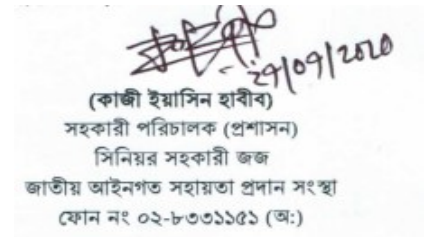 ২৭/০৭/২০২০
(কাজী ইয়াসিন হাবীব)
সহকারী পরিচালক (প্রশাসন)
সিনিয়র সহকারী জজ
জাতীয় আইনগত সহায়তা প্রদান সংস্থা
ফোন নং ০২-৮৩৩১১৫১ (অ:)